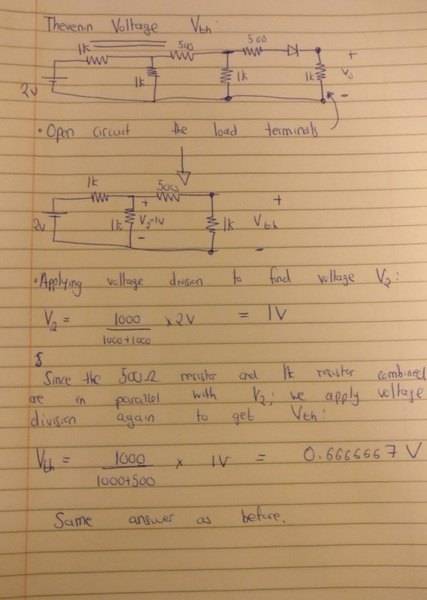 Thevenin Voltage Vth:
1k 500 500
2v 1k 1k 1k + V0 -
• Open circuit the load terminals
1k 500
2v 1k + V2=1V - 1k + Vth -
• Applying voltage division to find voltage V2:
V2 = 1000 / 1000+1000 x 2V = 1V
S
Since the 500Ω resistor and 1k resistor combined
are in parallel with V2; we apply voltage
division again to get Vth:
Vth = 1000 / 1000+500 x 1V = 0.6666667 V
Same answer as before.